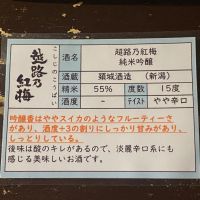 越路乃紅梅
こしじのこうばい
酒名
越路乃紅梅
純米吟醸
酒蔵
頚城酒造 (新潟)
精米
55%
度数
15度
酒度
-
テイスト
やや辛口
吟醸香はややスイカのようなフルーティーさ
があり、酒度+3の割りにしっかり甘みがあり、
しっとりしている。
後味は酸のキレがあるので、淡麗辛口系にも
感じる美味しいお酒です。